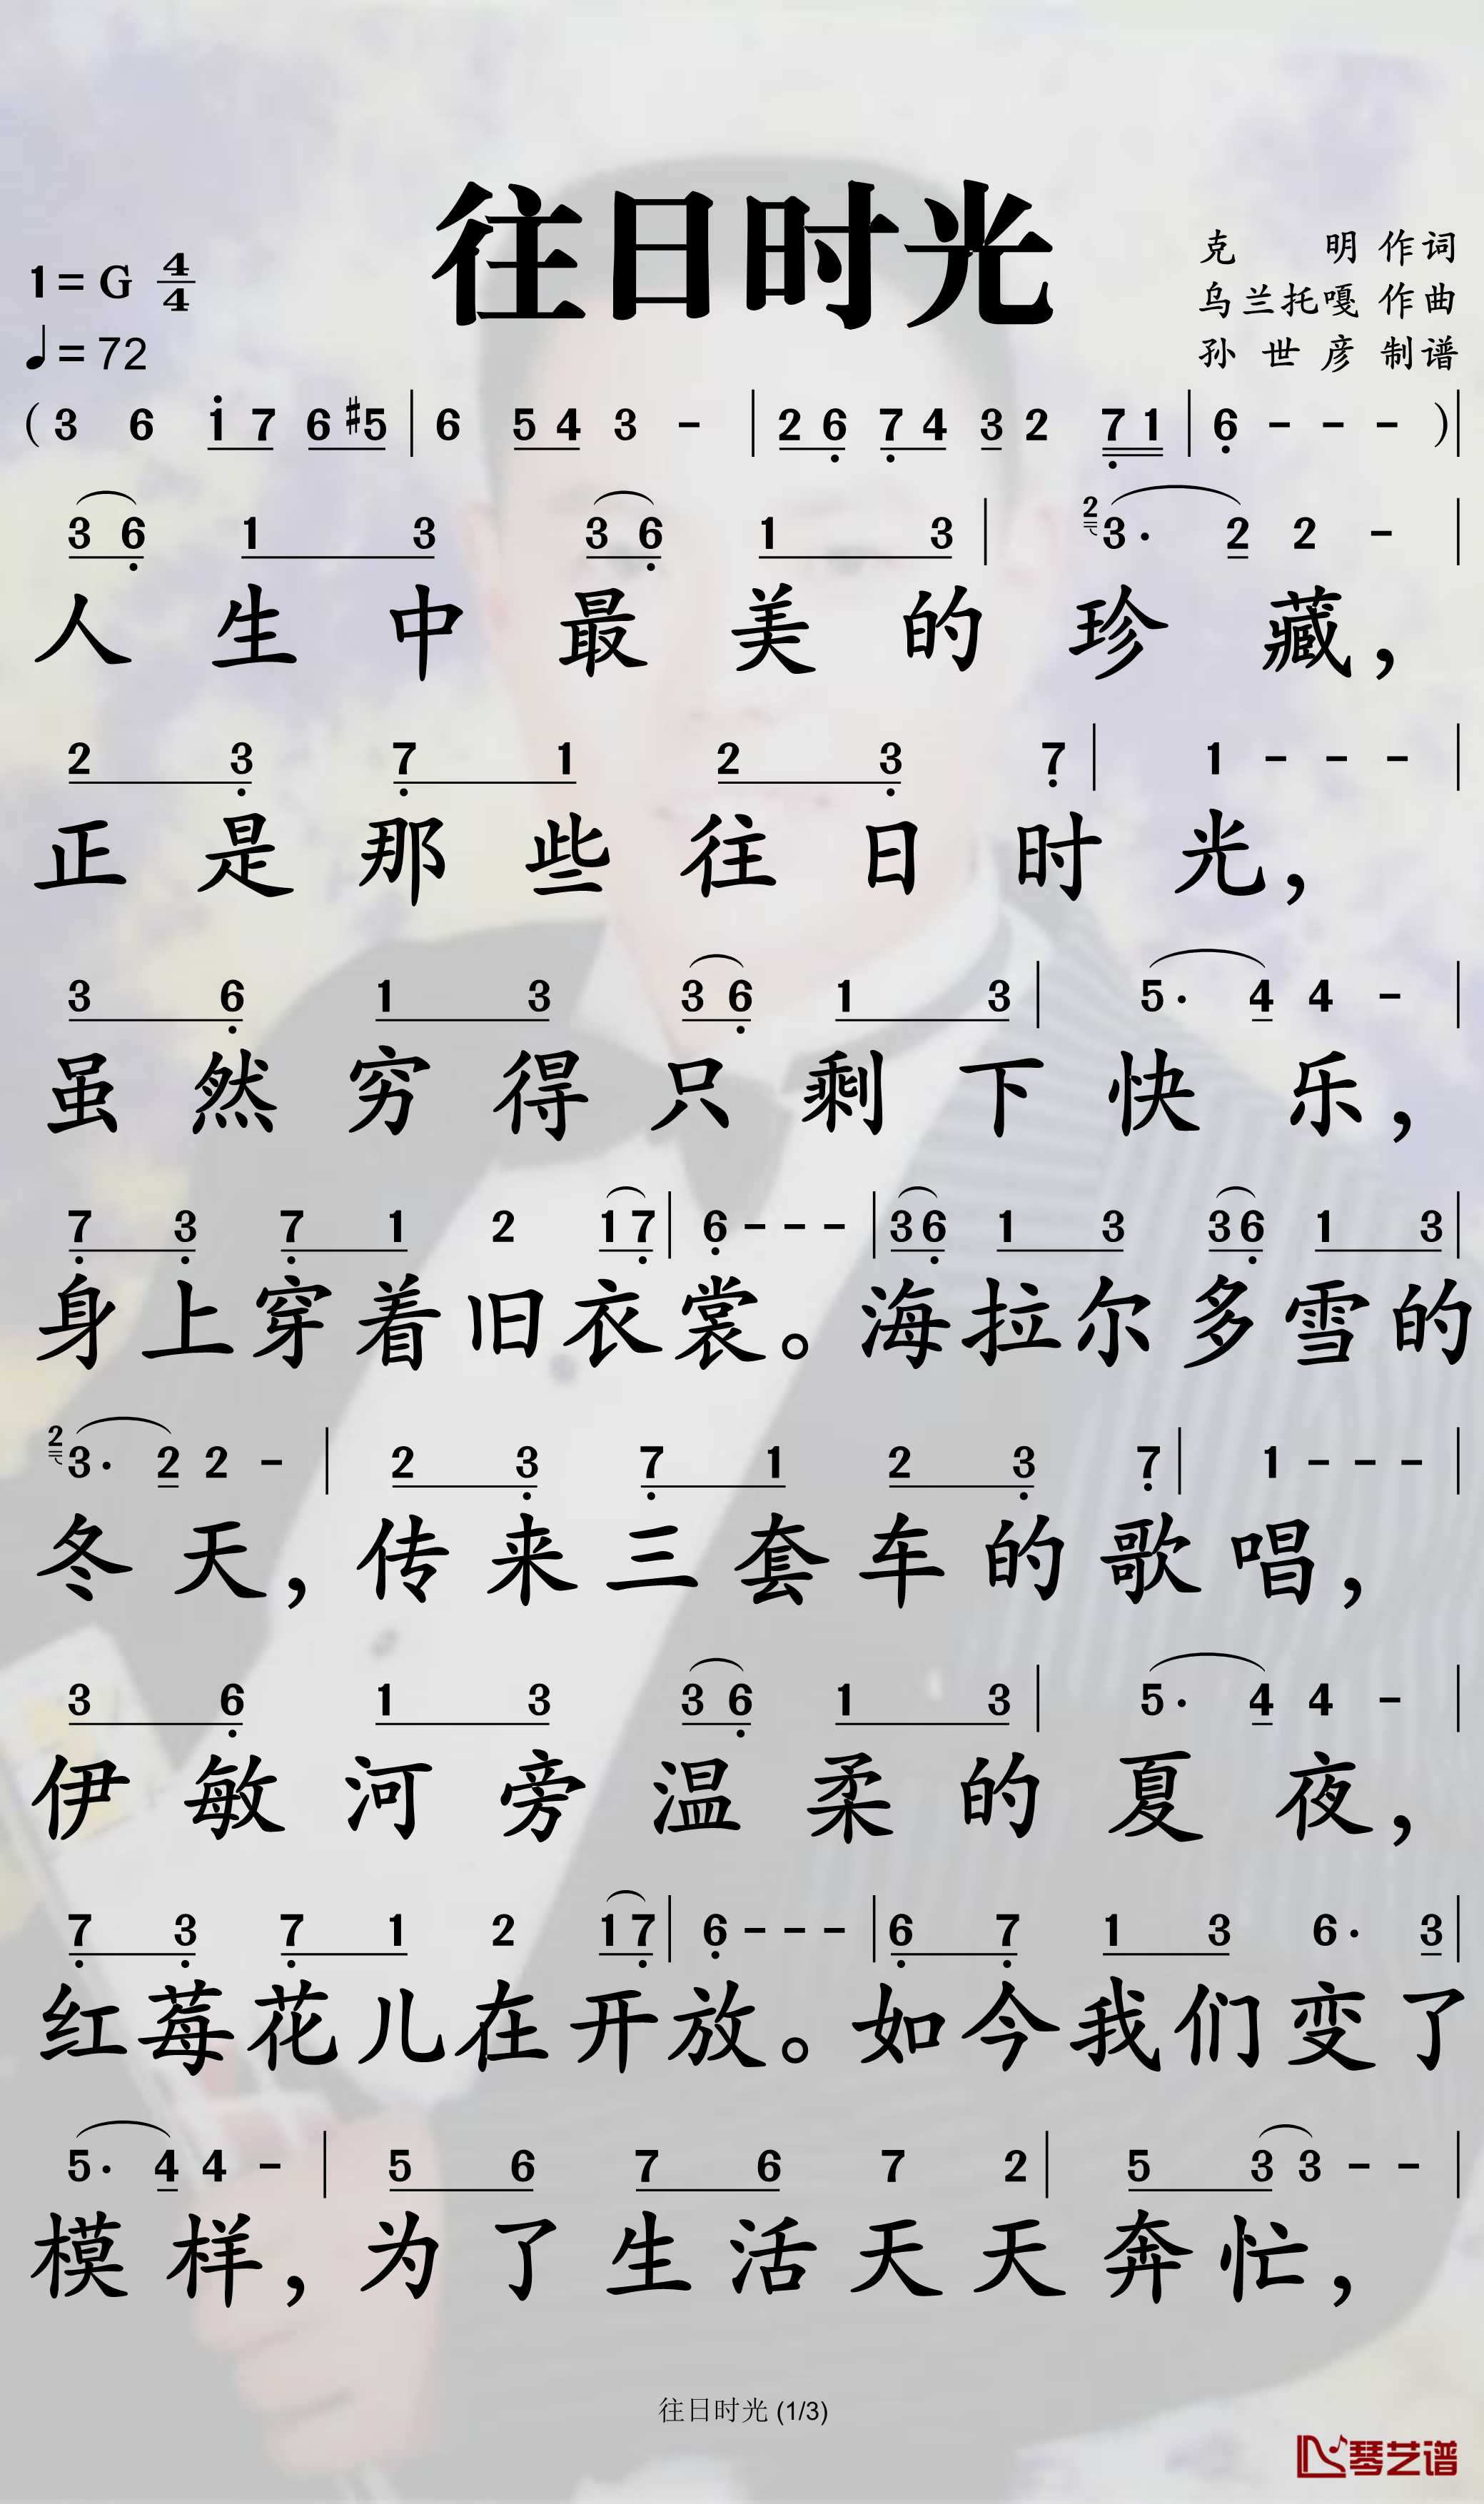 往日时光
克 明 作词
1=G 4/4
乌兰托嘎 作曲
♩=72
孙世彦 制谱
( 3 6 1 7 6 #5 | 6 5 4 3 - | 2 6 7 4 3 2 7 1 | 6 - - - ) |
3 6 1 3 3 6 1 3 | 2 3· 2 2 - |
人生中最美的珍藏，
2 3 7 1 2 3 7 | 1 - - - |
正是那些往日时光，
3 6 1 3 3 6 1 3 | 5· 4 4 - |
虽然穷得只剩下快乐，
7 3 7 1 2 1 7 | 6 - - - | 3 6 1 3 3 6 1 3 |
身上穿着旧衣裳。海拉尔多雪的
2 3· 2 2 - | 2 3 7 1 2 3 7 | 1 - - - |
冬天，传来三套车的歌唱，
3 6 1 3 3 6 1 3 | 5· 4 4 - |
伊敏河旁温柔的夏夜，
7 3 7 1 2 1 7 | 6 - - - | 6 7 1 3 6· 3 |
红莓花儿在开放。如今我们变了
5· 4 4 - | 5 6 7 6 7 2 | 5 3 3 - - |
模样，为了生活天天奔忙，
往日时光 (1/3)
琴艺谱